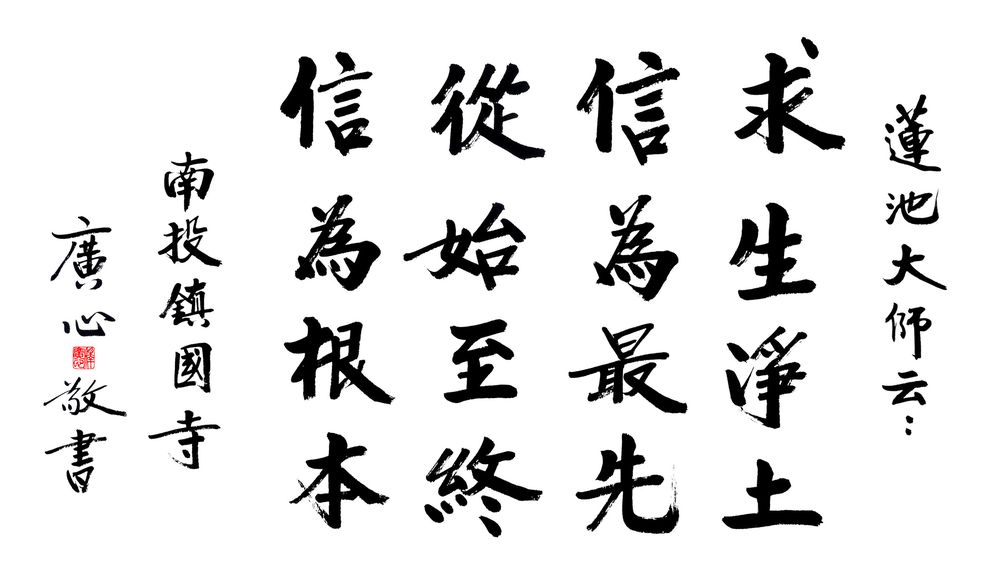 蓮池大師云：
求生淨土
信為最先
從始至終
信為根本
南投鎮國寺
廣心敬書